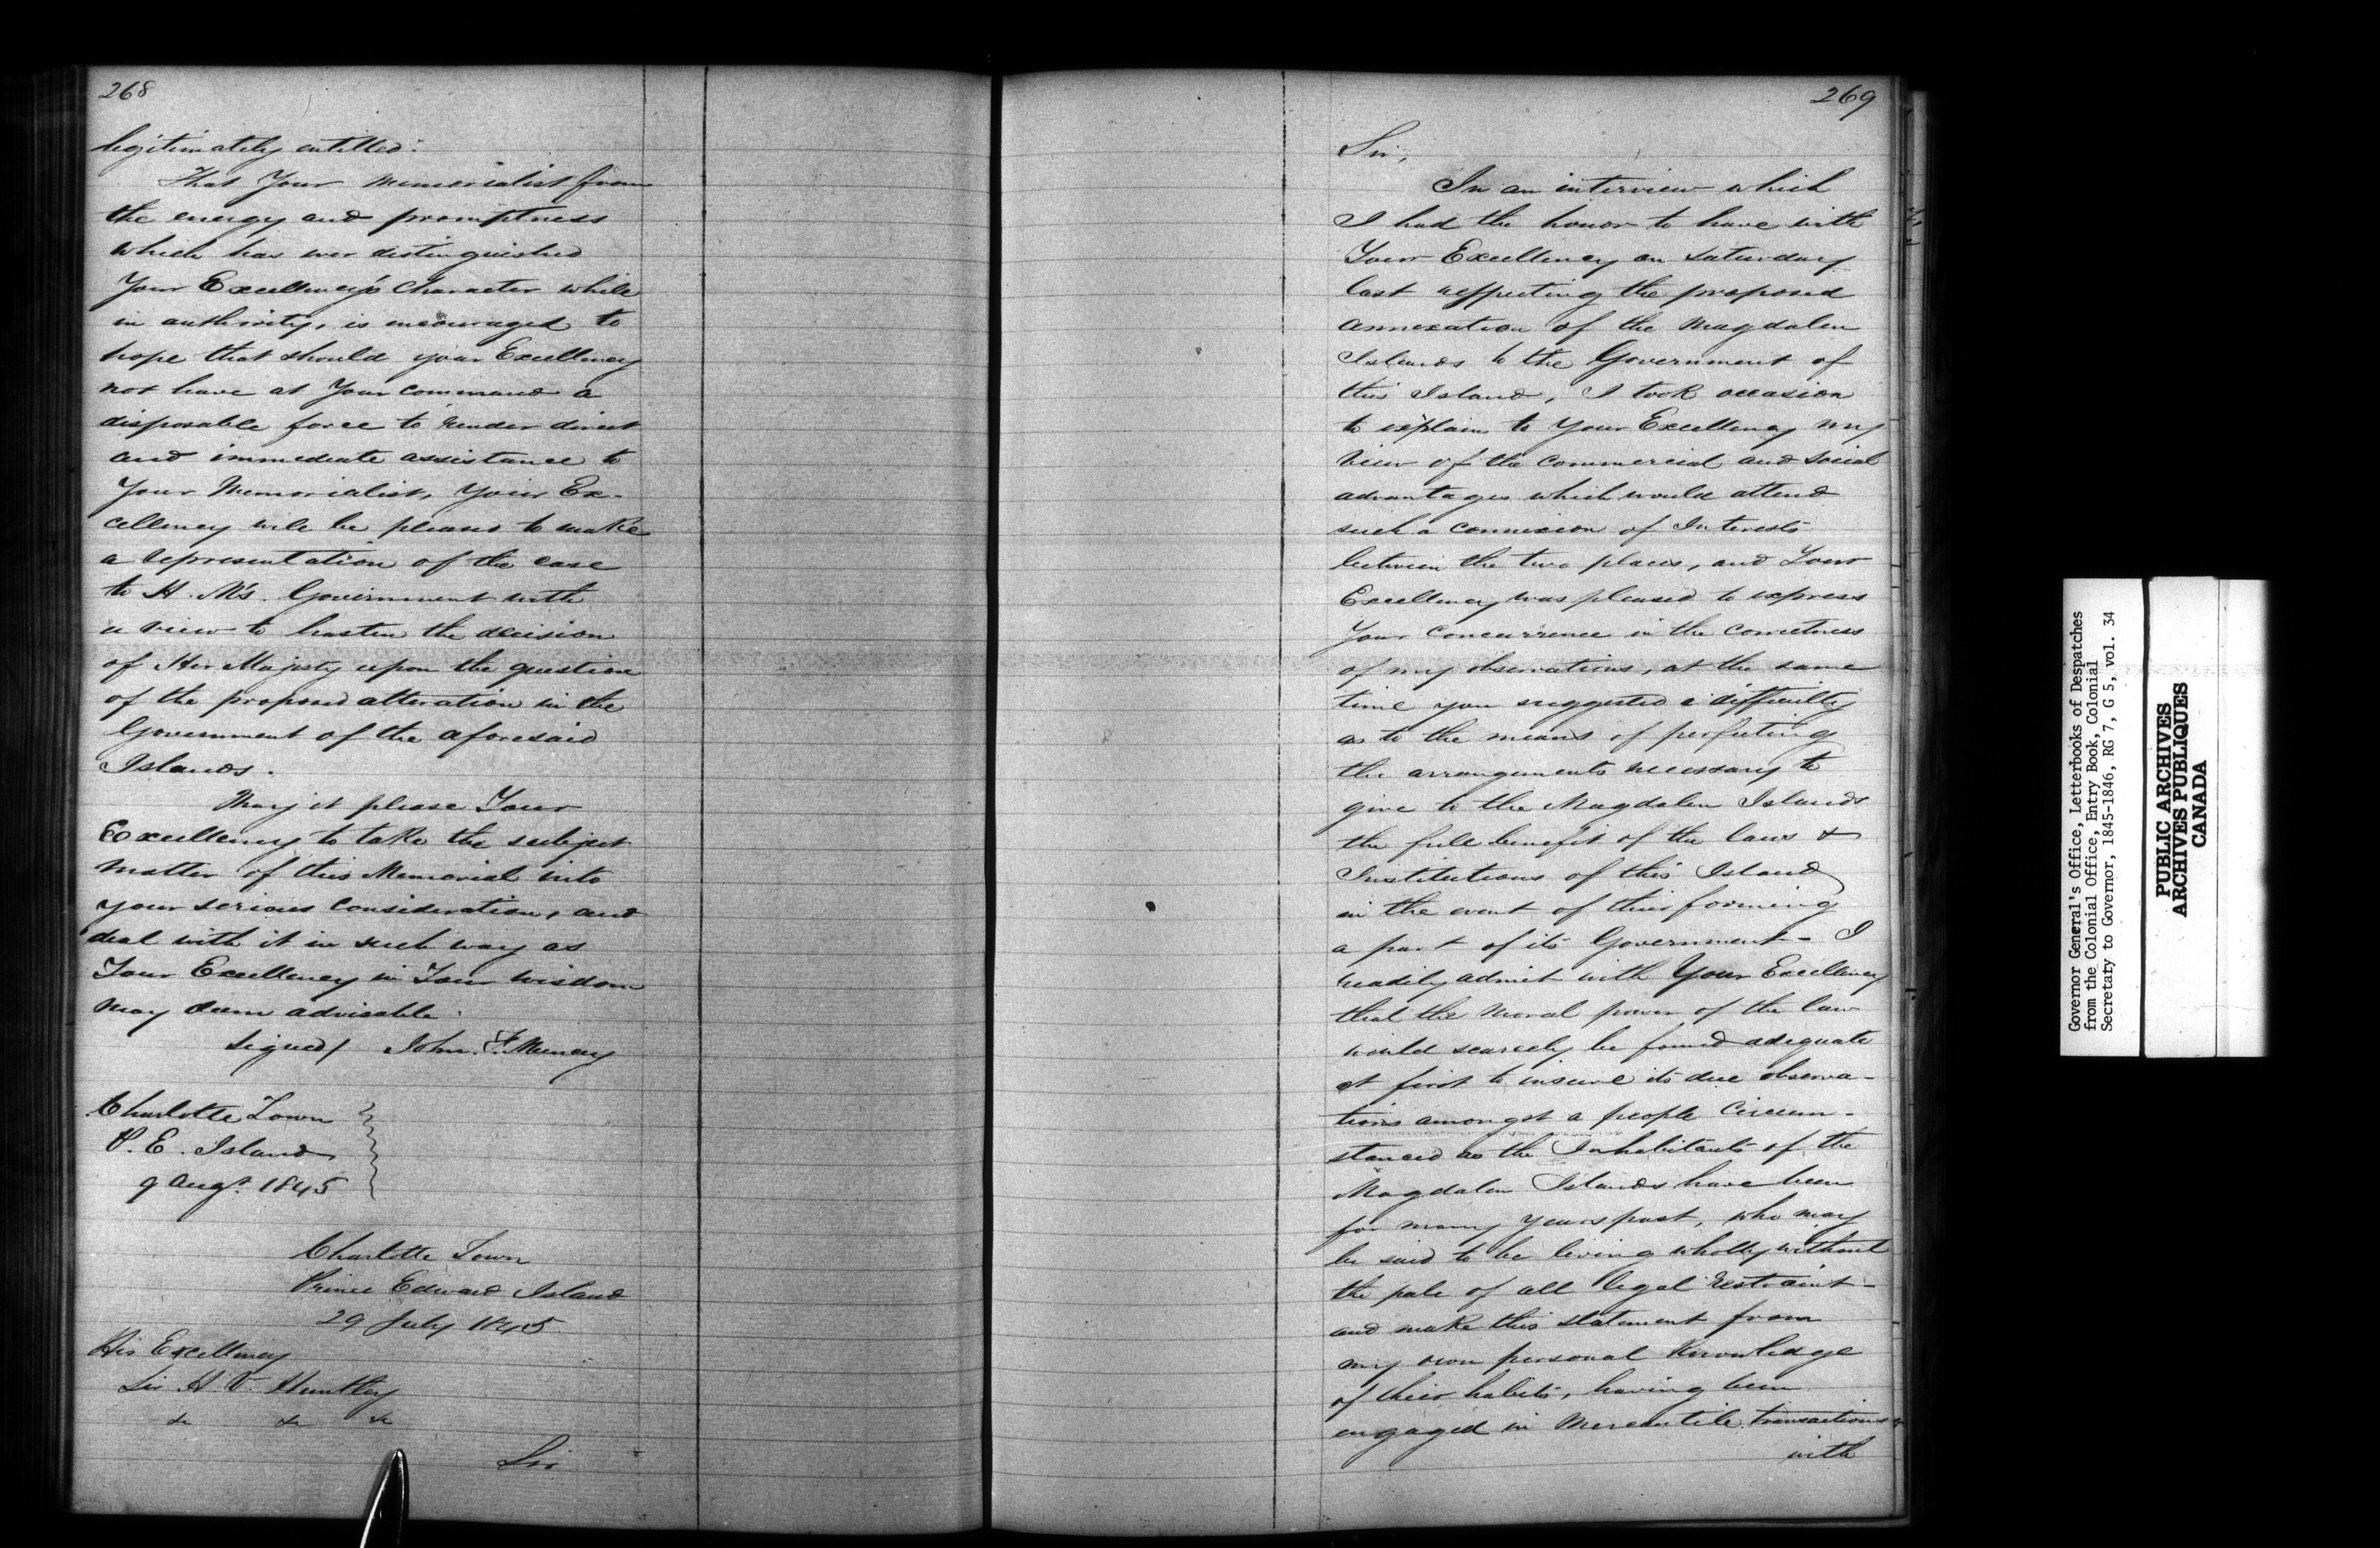 268
legitimately entitled.
That Your Memorialist from
the energy and promptness
which has ever distinguished
Your Excellency's Character while
in authority, is encouraged to
hope that should your Excellency
not have at Your Command a
disposable force to render direct
and immediate assistance to
Your Memorialist, Your Ex-
cellency will be pleased to make
a representation of the case
to H. M's. Government with
a view to hasten the decision
of Her Majesty upon the question
of the proposed alteration in the
Government of the aforesaid
Islands.
May it please Your
Excellency to take the subject
matter of this Memorial into
your serious consideration, and
deal with it in such way as
Your Excellency in Your wisdom
may deem advisable.
Signed/ John
Charlotte Town
P. E. Island
9 Augt. 1845
Charlotte Town
Prince Edward Island
29 July 1845
His Excellency
Sir H. V. Huntley
&c &c &c
Sir
269
Sir,
In an interview which
I had the honor to have with
Your Excellency on Saturday
last respecting the proposed
annexation of the Magdalen
Islands to the Government of
this Island, I took occasion
to explain to Your Excellency my
view of the Commercial and Social
advantages which would attend
such a connexion of Interests
between the two places, and Your
Excellency was pleased to express
Your Concurrence in the correctness
of my observations, at the same
time you suggested a difficulty
as to the means of perfecting
the arrangements necessary to
give to the Magdalen Islands
the full benefit of the laws &
Institutions of this Island
in the event of their forming
a part of its Government - I
readily admit with Your Excellency
that the Moral power of the law
would scarcely be found adequate
at first to insure its due observa-
tions amongst a people Circum-
stanced as the Inhabitants of the
Magdalen Islands have been
for many years past, who may
be said to be living wholly without
the pale of all legal restraint -
and make this statement from
my own personal Knowledge
of their habits, having been
engaged in Mercantile transactions
with
Governor General's Office, Letterbooks of Despatches
from the Colonial Office, Entry Book, Colonial
Secretaty to Governor, 1845-1846, RG 7, G 5, vol. 34
PUBLIC ARCHIVES
ARCHIVES PUBLIQUES
CANADA